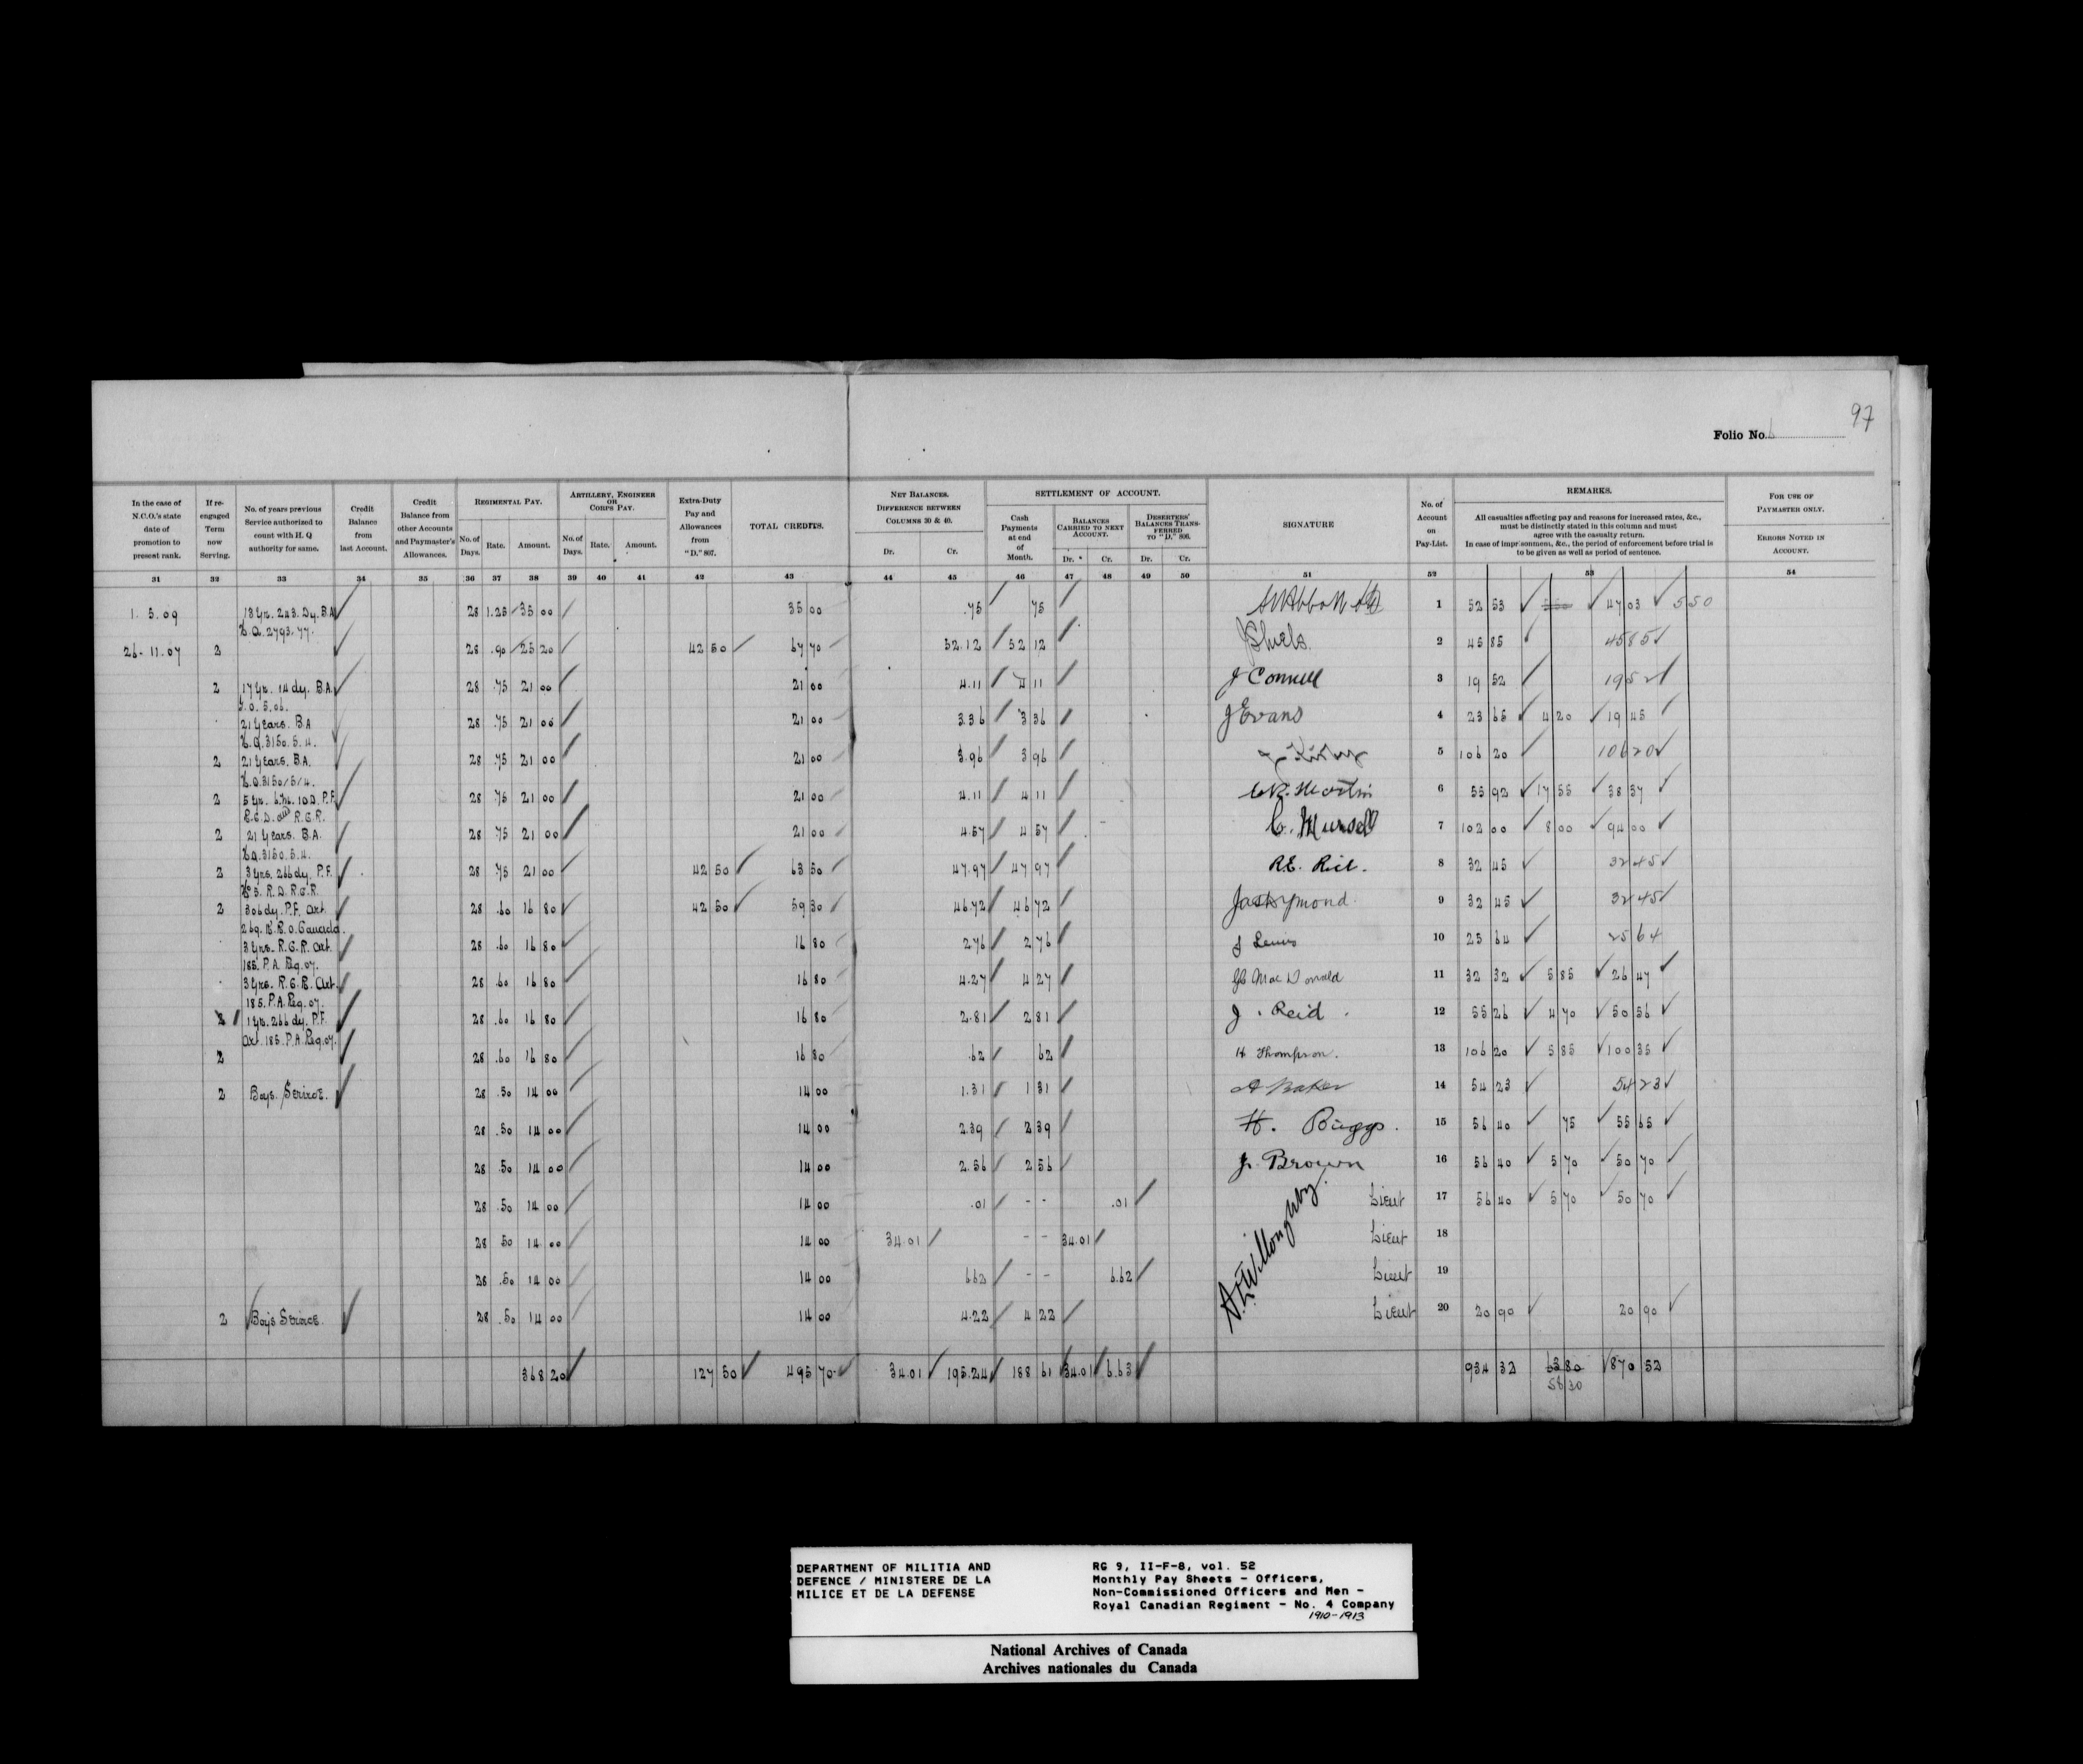 97
Folio No. 6
In the case of N.C.O.'s state date of promotion to present rank.
If re-engaged Term now Serving.
No. of years previous Service authorized to count with H. Q authority for same.
Credit Balance from last Account.
Credit Balance from other Accounts and Paymaster's Allowances.
REGIMENTAL PAY.
No. of Days. Rate. Amount.
ARTILLERY, ENGINEER OR CORPS PAY.
No. of Days. Rate. Amount.
Extra-Duty Pay and Allowances from "D." 807.
TOTAL CREDITS.
NET BALANCES.
DIFFERENCE BETWEEN COLUMNS 30 & 40.
Dr. Cr.
SETTLEMENT OF ACCOUNT.
Cash Payments at end of Month.
BALANCES CARRIED TO NEXT ACCOUNT.
Dr. Cr.
DESERTERS' BALANCES TRANSFERRED TO "D." 806.
Dr. Cr.
SIGNATURE
No. of Account on Pay-List.
REMARKS.
All casualties affecting pay and reasons for increased rates, &c., must be distinctly stated in this column and must agree with the casualty return.
In case of imprisonment, &c., the period of enforcement before trial is to be given as well as period of sentence.
FOR USE OF PAYMASTER ONLY.
ERRORS NOTED IN ACCOUNT.
31 32 33 34 35 36 37 38 39 40 41 42 43 44 45 46 47 48 49 50 51 52 53 54
1. 5.09 18 Yrs. 243. Dy. B.A 28 1.25 35 00 35 00 .75 75 1 52 53 47 03 5 50
H.Q. 2793.77.
26-11.07 2 28 .90 25 20 42 50 67 70 52.12 52 12 J Shiels. 2 45 85 45 85
2 17 Yrs. 14 dy. B.A. 28 .75 21 00 21 00 4.11 4 11 J Connell 3 19 52 19 52
G.O. 5.06.
21 Years. B.A 28 .75 21 00 21 00 3.36 3 36 J Evans 4 23 65 4 20 19 45
H.Q. 3150.5.4.
2 21 Years. B.A. 28 .75 21 00 21 00 3.96 3 96 5 106 20 106 20
H.Q. 3150/5/4.
2 5 Yrs. 6 Ms. 10 D. P.F. 28 .75 21 00 21 00 4.11 4 11 Martin 6 55 92 17 55 38 37
R.C.D. and R.C.R.
2 21 Years. B.A. 28 .75 21 00 21 00 4.57 4 57 C. Mursell 7 102 00 8 00 94 00
H.Q. 3150.5.4.
2 3 Yrs. 266 dy. P.F. 28 .75 21 00 42 50 63 50 47.97 47 97 R.E. Rice. 8 32 45 32 45
No 3. R.D. R.C.R.
2 306 dy. P.F. Art. 28 .60 16 80 42 50 59 30 46.72 46 72 Jas Symond 9 32 45 32 45
269. K.R.O. Canada.
3 Yrs. R.C.R. Art. 28 .60 16 80 16 80 2.76 2 76 J Lewis 10 25 64 25 64
185. P.A. Reg. 07.
3 Yrs. R.C.R. Art. 28 .60 16 80 16 80 4.27 4 27 Mac Donald 11 32 32 5 85 26 47
185. P.A. Reg. 07.
2 1 Yr. 266 dy. P.F. 28 .60 16 80 16 80 2.81 2 81 J. Reid. 12 55 26 4 70 50 56
Art. 185. P.A. Reg. 07.
2 28 .60 16 80 16 80 .62 62 H Thompson. 13 106 20 5 85 100 35
2 Boys. Service. 28 .50 14 00 14 00 1.31 1 31 A Baker 14 54 23 54 23
28 .50 14 00 14 00 2.39 2 39 H. Buggs. 15 56 40 75 55 65
28 .50 14 00 14 00 2.56 2 56 J. Brown 16 56 40 5 70 50 70
28 .50 14 00 14 00 .01 - - .01 Lieut 17 56 40 5 70 50 70
28 50 14 00 14 00 34.01 - - 34.01 Lieut 18
28 .50 14 00 14 00 6.62 - - 6.62 Lieut 19
2 Boys Service. 28 .50 14 00 14 00 4.22 4 22 Lieut 20 20 90 20 90
Willoughby.
368 20 127 50 495 70 34.01 195.24 188 61 34.01 6.63 934 32 63 80 870 52
58 30
DEPARTMENT OF MILITIA AND
DEFENCE / MINISTERE DE LA
MILICE ET DE LA DEFENSE
RG 9, II-F-8, vol. 52
Monthly Pay Sheets - Officers,
Non-Commissioned Officers and Men -
Royal Canadian Regiment - No. 4 Company
1910-1913
National Archives of Canada
Archives nationales du Canada